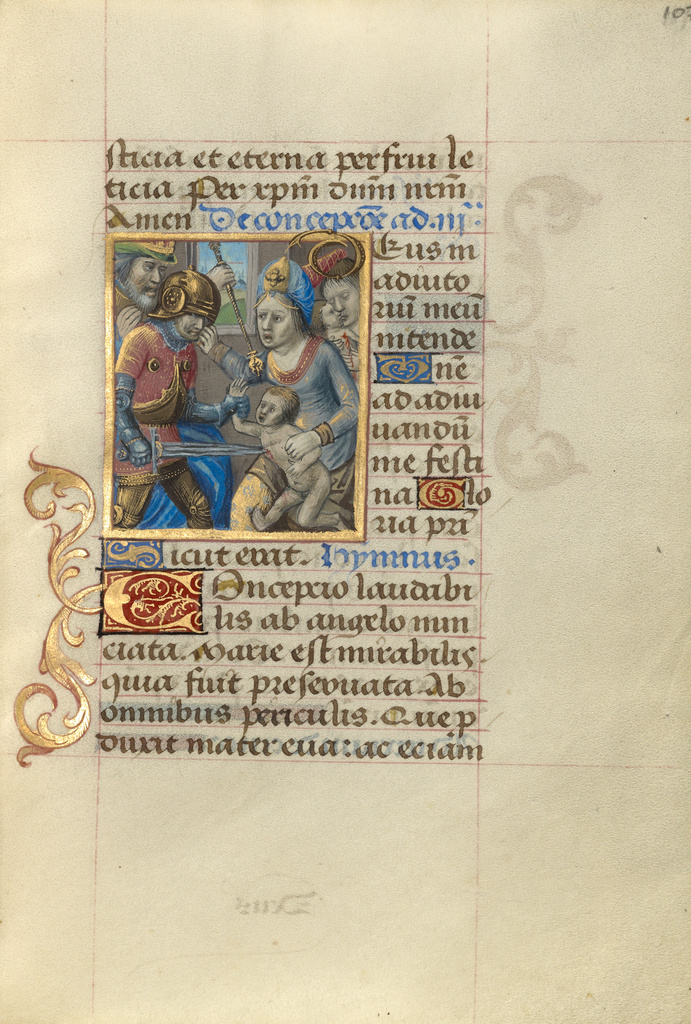 103
sticia et eterna perfrui le
ticia Per xp̄m dn̄m nr̄m
Amen De concepc̄õe ad .iij.
Eus in
adiuto
riū meū
intende
Dn̄e
ad adiu
uandū
me festi
na Glo
ria pr̄i
Sicut erat. hymnus.
Concepcio laudabi
lis ab angelo nun
ciata. Marie est mirabilis
quia fuit preseruata. Ab
omnibus periculis. Que p
duxit mater eua: ac eciam